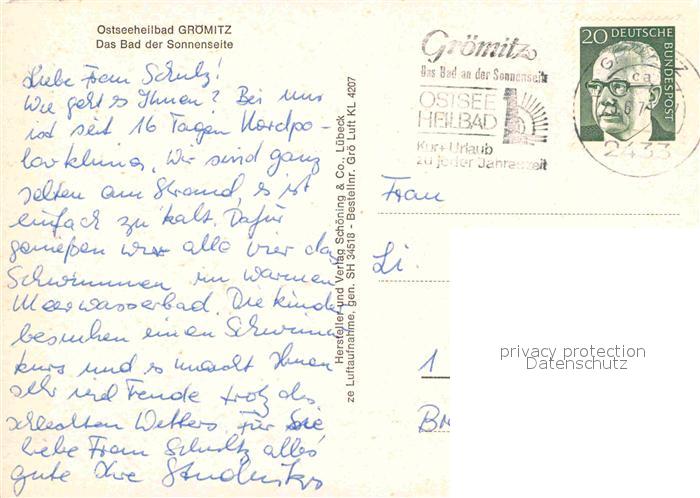 Ostseeheilbad GRÖMITZ
Das Bad der Sonnenseite
Liebe Frau Schultz!
Wie geht es Ihnen? Bei uns
ist seit 16 Tagen Nordpo-
larklima. Wir sind ganz
selten am Strand, es ist
einfach zu kalt. Dafür
genießen wir alle vier das
Schwimmen im warmen
Meerwasserbad. Die Kinder
besuchen einen Schwimm
kurs und es macht Ihnen
sehr viel Freude trotz des
schlechten Wetters. Für Sie
liebe Frau Schultz alles
gute Ihre
Hersteller und Verlag Schöning & Co., Lübeck
ze Luftaufnahme, gen. SH 34518 - Bestellnr. Grö Luft KL 4207
Grömitz
Das Bad an der Sonnenseite
OSTSEE
HEILBAD
Kur + Urlaub
zu jeder Jahreszeit
20 DEUTSCHE
BUNDESPOST
ca
2433
Frau
Li.
1
privacy protection
Datenschutz